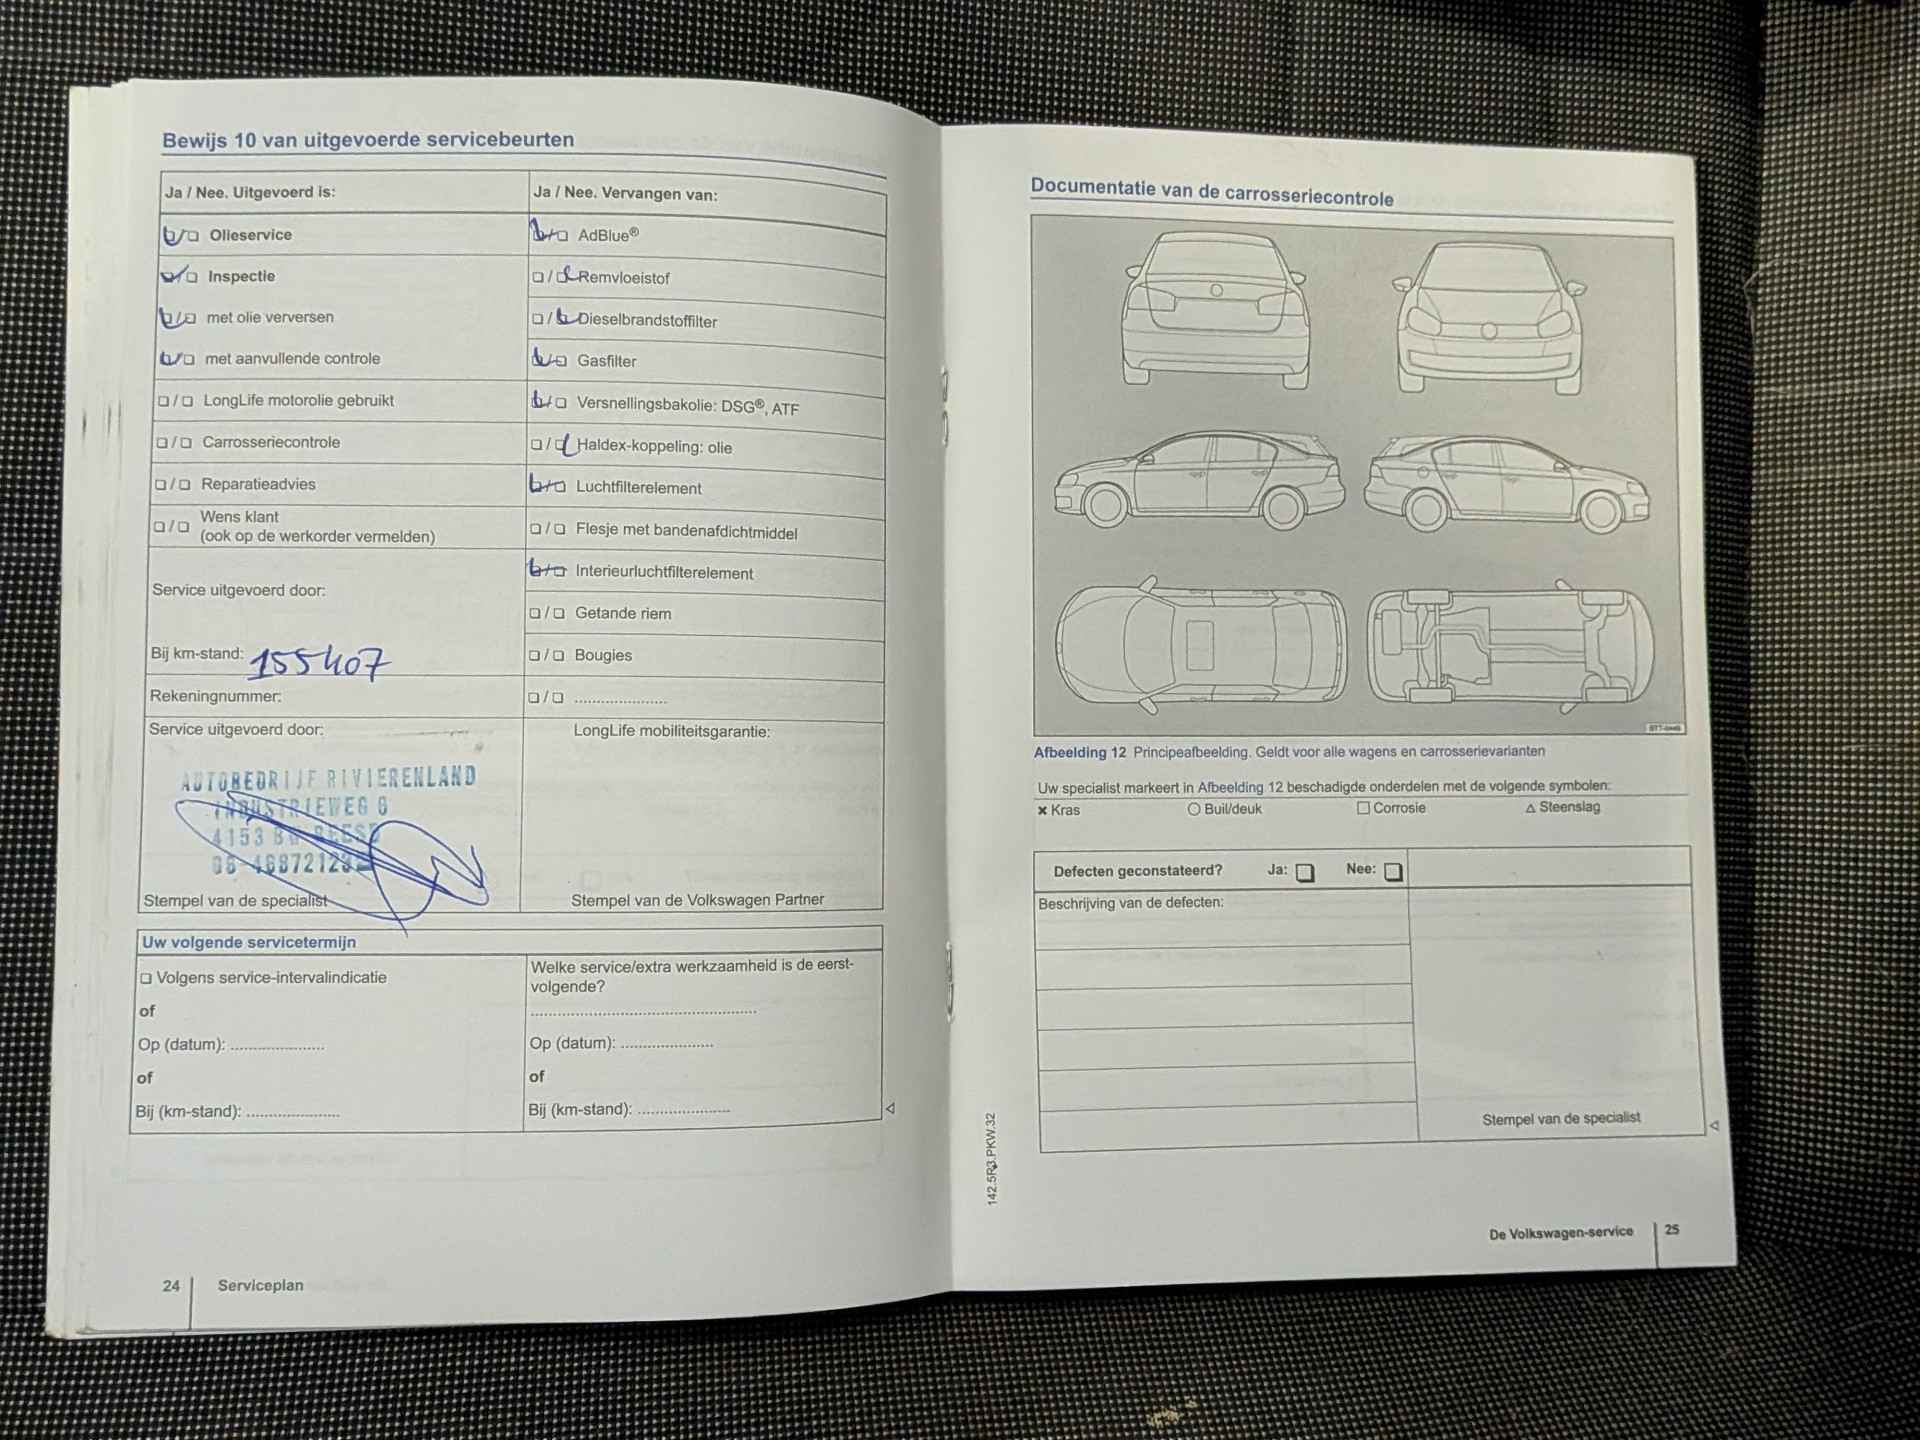 Bewijs 10 van uitgevoerde servicebeurten
Ja / Nee. Uitgevoerd is:
Olieservice
Inspectie
met olie verversen
met aanvullende controle
LongLife motorolie gebruikt
Carrosseriecontrole
Reparatieadvies
Wens klant
(ook op de werkorder vermelden)
Service uitgevoerd door:
Bij km-stand: 155407
Rekeningnummer:
Service uitgevoerd door:
AUTOBEDRIJF RIVIERENLAND
INDUSTRIEWEG 6
4153 BW BEESD
Stempel van de specialist
Ja / Nee. Vervangen van:
AdBlue®
Remvloeistof
Dieselbrandstoffilter
Gasfilter
Versnellingsbakolie: DSG®, ATF
Haldex-koppeling: olie
Luchtfilterelement
Flesje met bandenafdichtmiddel
Interieurluchtfilterelement
Getande riem
Bougies
.....................
LongLife mobiliteitsgarantie:
Stempel van de Volkswagen Partner
Uw volgende servicetermijn
Volgens service-intervalindicatie
of
Op (datum): .....................
of
Bij (km-stand): .....................
Welke service/extra werkzaamheid is de eerst-
volgende?
...................................................
Op (datum): .....................
of
Bij (km-stand): .....................
24 Serviceplan
Documentatie van de carrosseriecontrole
Afbeelding 12 Principeafbeelding. Geldt voor alle wagens en carrosserievarianten
Uw specialist markeert in Afbeelding 12 beschadigde onderdelen met de volgende symbolen:
Kras Buil/deuk Corrosie Steenslag
Defecten geconstateerd? Ja: Nee:
Beschrijving van de defecten:
Stempel van de specialist
142.5R3.PKW.32
De Volkswagen-service 25